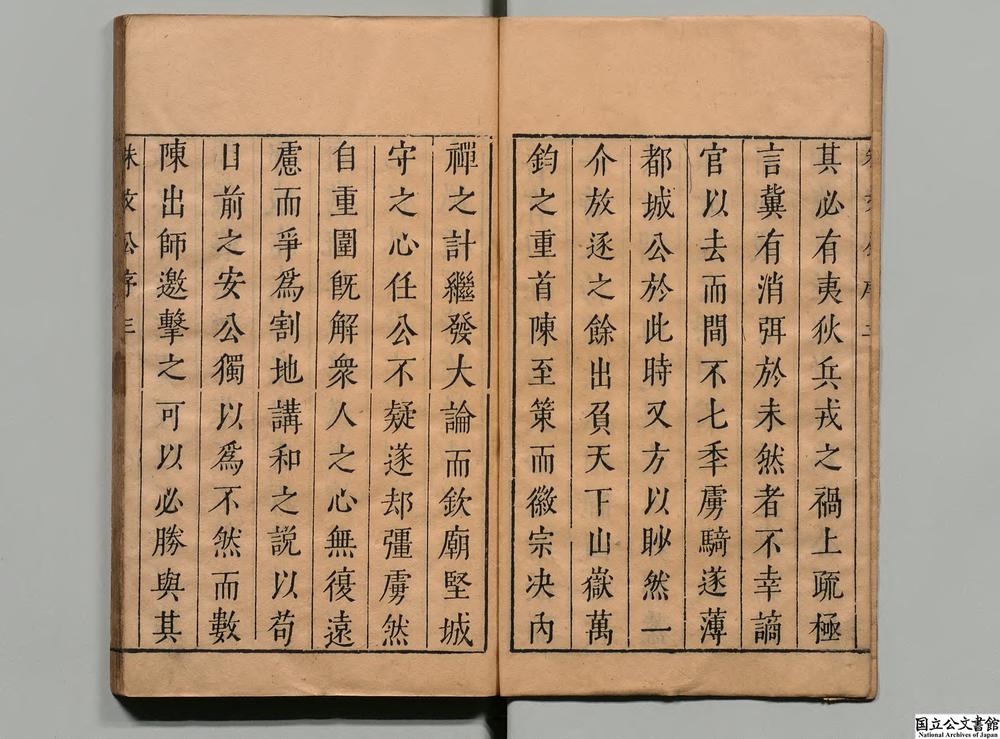 其必有夷狄兵戎之禍上疏極
言冀有消弭於未然者不幸謫
官以去而間不七季虜騎遂薄
都城公於此時又方以眇然一
介放逐之餘出負天下山嶽萬
鈞之重首陳至策而徽宗决內
禪之計繼發大論而欽廟堅城
守之心任公不疑遂却彊虜然
自重圍既解衆人之心無復遠
慮而爭爲割地講和之説以苟
目前之安公獨以爲不然而數
陳出師邀擊之可以必勝與其
朱文公序 三
国立公文書館
National Archives of Japan